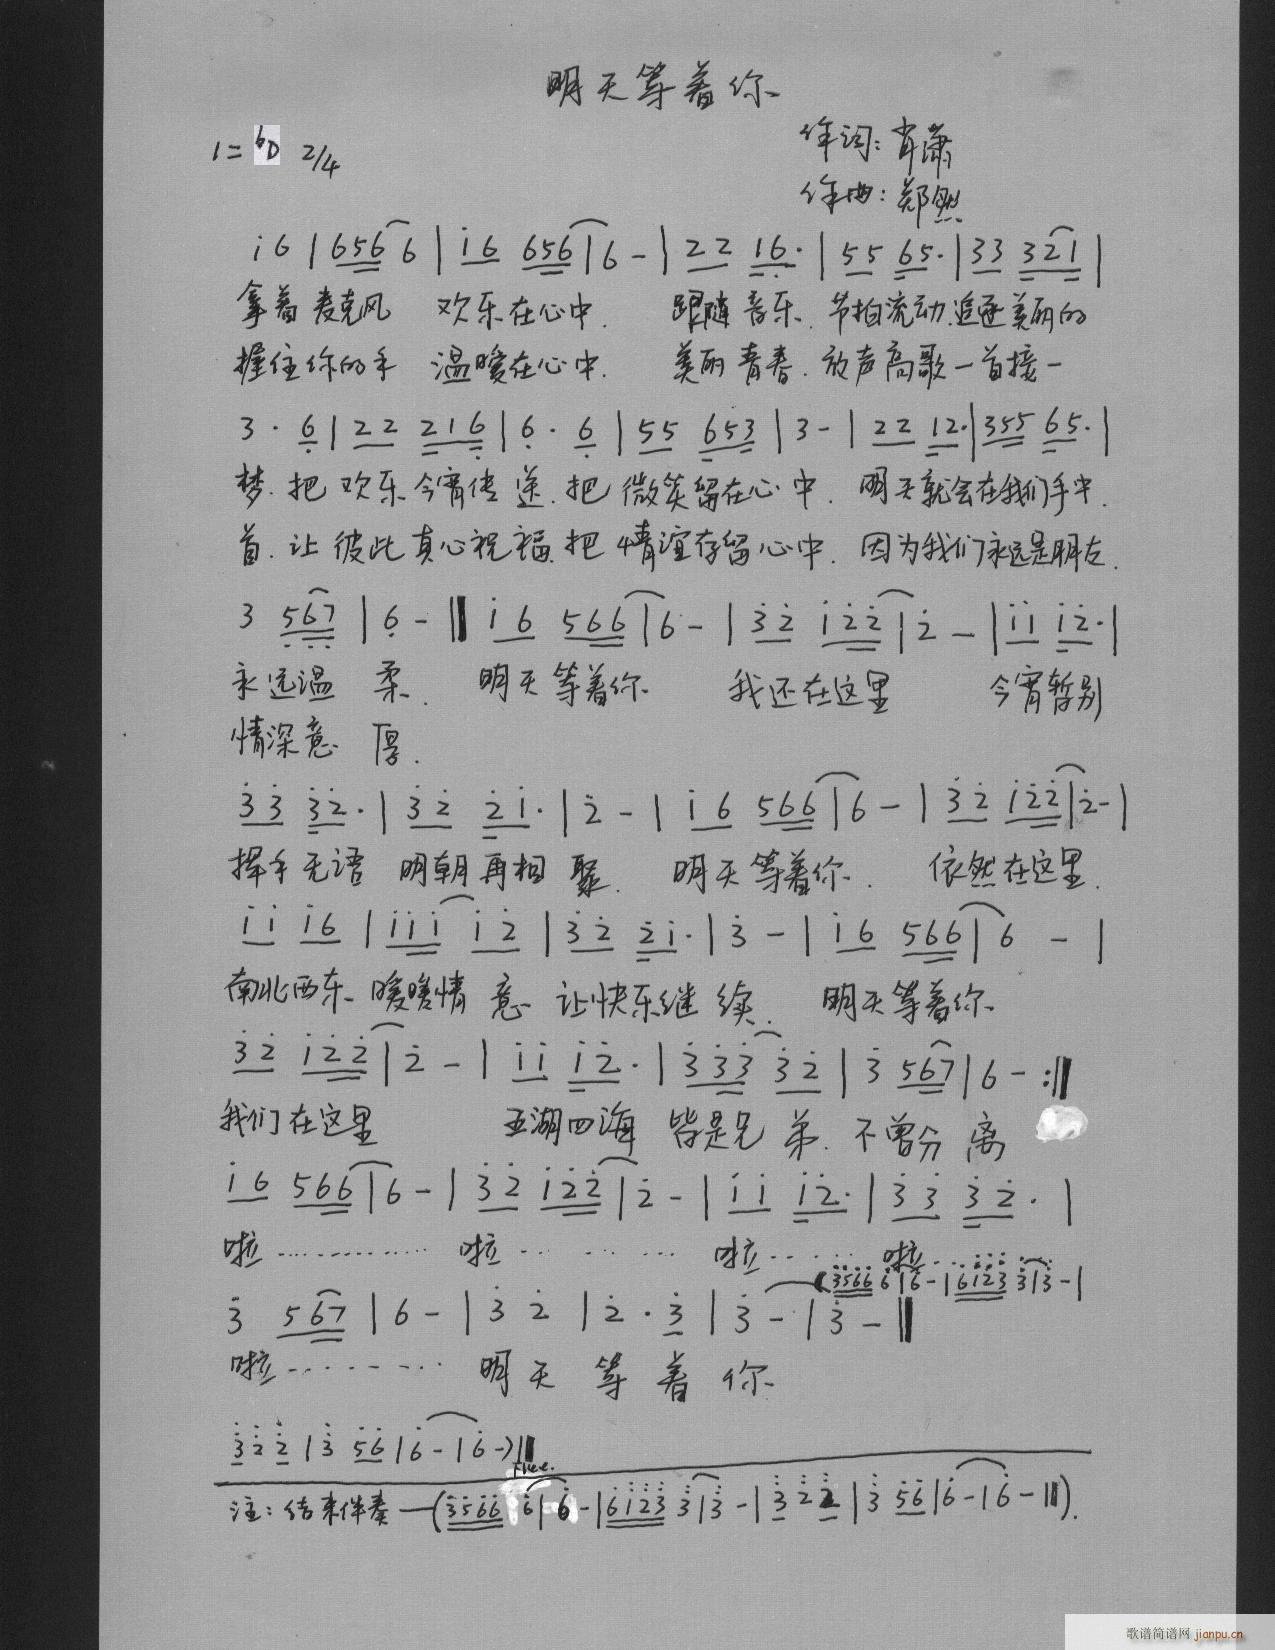 明天等着你
1=♭D 2/4
作词:肖潇
作曲:郑然
i 6 | 656 6 | i6 656 | 6 - | 22 16· | 55 65· | 33 321 |
拿着麦克风 欢乐在心中. 跟随音乐.节拍流动.追逐美丽的
握住你的手 温暖在心中. 美丽青春.放声高歌一首接一
3 · 6 | 22 216 | 6 · 6 | 55 653 | 3 - | 22 12· | 355 65· |
梦.把欢乐今宵传递.把微笑留在心中.明天就会在我们手中.
首.让彼此真心祝福.把情谊存留心中.因为我们永远是朋友.
3 567 | 6 - || i6 566 | 6 - | 32 122 | 2 - | ii i2· |
永远温柔. 明天等着你 我还在这里 今宵暂别
情深意厚.
33 32· | 32 21· | 2 - | i6 566 | 6 - | 32 122 | 2 - |
挥手无语 明朝再相聚. 明天等着你. 依然在这里.
ii i6 | iii i2 | 32 2i· | 3 - | i6 566 | 6 - |
南北西东 暖暖情意 让快乐继续. 明天等着你
32 122 | 2 - | ii i2· | 333 32 | 3 567 | 6 - :||
我们在这里 五湖四海 皆是兄弟.不曾分离
i6 566 | 6 - | 32 122 | 2 - | ii i2· | 33 32· |
啦………… 啦… …… 啦…… 啦……
(3566 6 | 6 - | 6123 3 | 3 - |
3 567 | 6 - | 3 2 | 2 · 3 | 3 - | 3 - ||
啦……… 明天等着你
322 | 3 56 | 6 - | 6 -) ||
注:结束伴奏—(3566 6 | 6 - | 6123 3 | 3 - | 322 | 3 56 | 6 - | 6 - ||).
歌谱简谱网 jianpu.cn